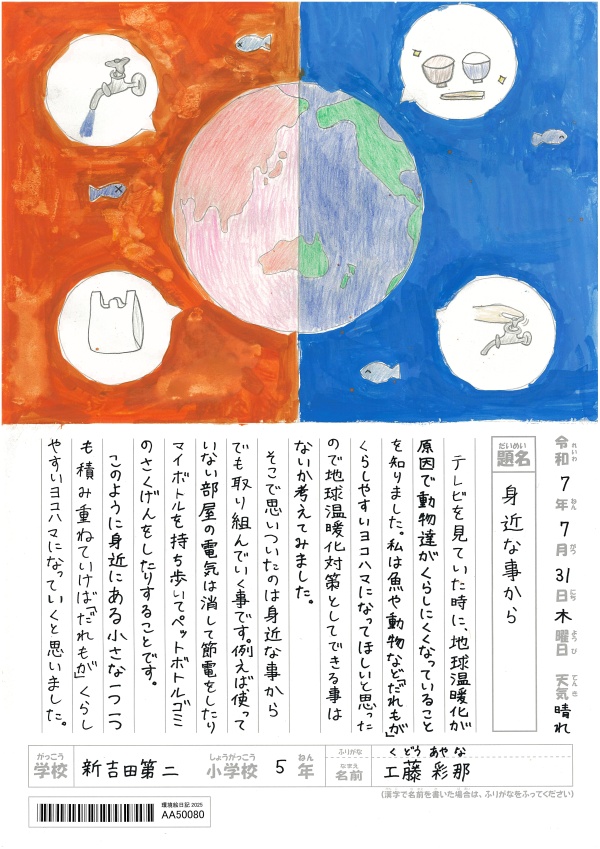 令和7年7月31日木曜日 天気晴れ
れいわ ねん がつ にち ようび てんき
だいめい
題名
身近な事から
テレビを見ていた時に、地球温暖化が
原因で動物達がくらしにくくなっていること
を知りました。私は魚や動物など「だれもが」
くらしやすいヨコハマになってほしいと思った
ので地球温暖化対策としてできる事は
ないか考えてみました。
そこで思いついたのは身近な事から
でも取り組んでいく事です。例えば使って
いない部屋の電気は消して節電をしたり
マイボトルを持ち歩いてペットボトルゴミ
のさくげんをしたりすることです。
このように身近にある小さな一つ一つ
も積み重ねていけば「だれもが」くらし
やすいヨコハマになっていくと思いました。
がっこう しょうがっこう ねん
学校 新吉田第二 小学校 5年
ふりがな くどう あやな
なまえ
名前 工藤 彩那
(漢字で名前を書いた場合は、ふりがなをふってください)
環境絵日記 2025
AA50080